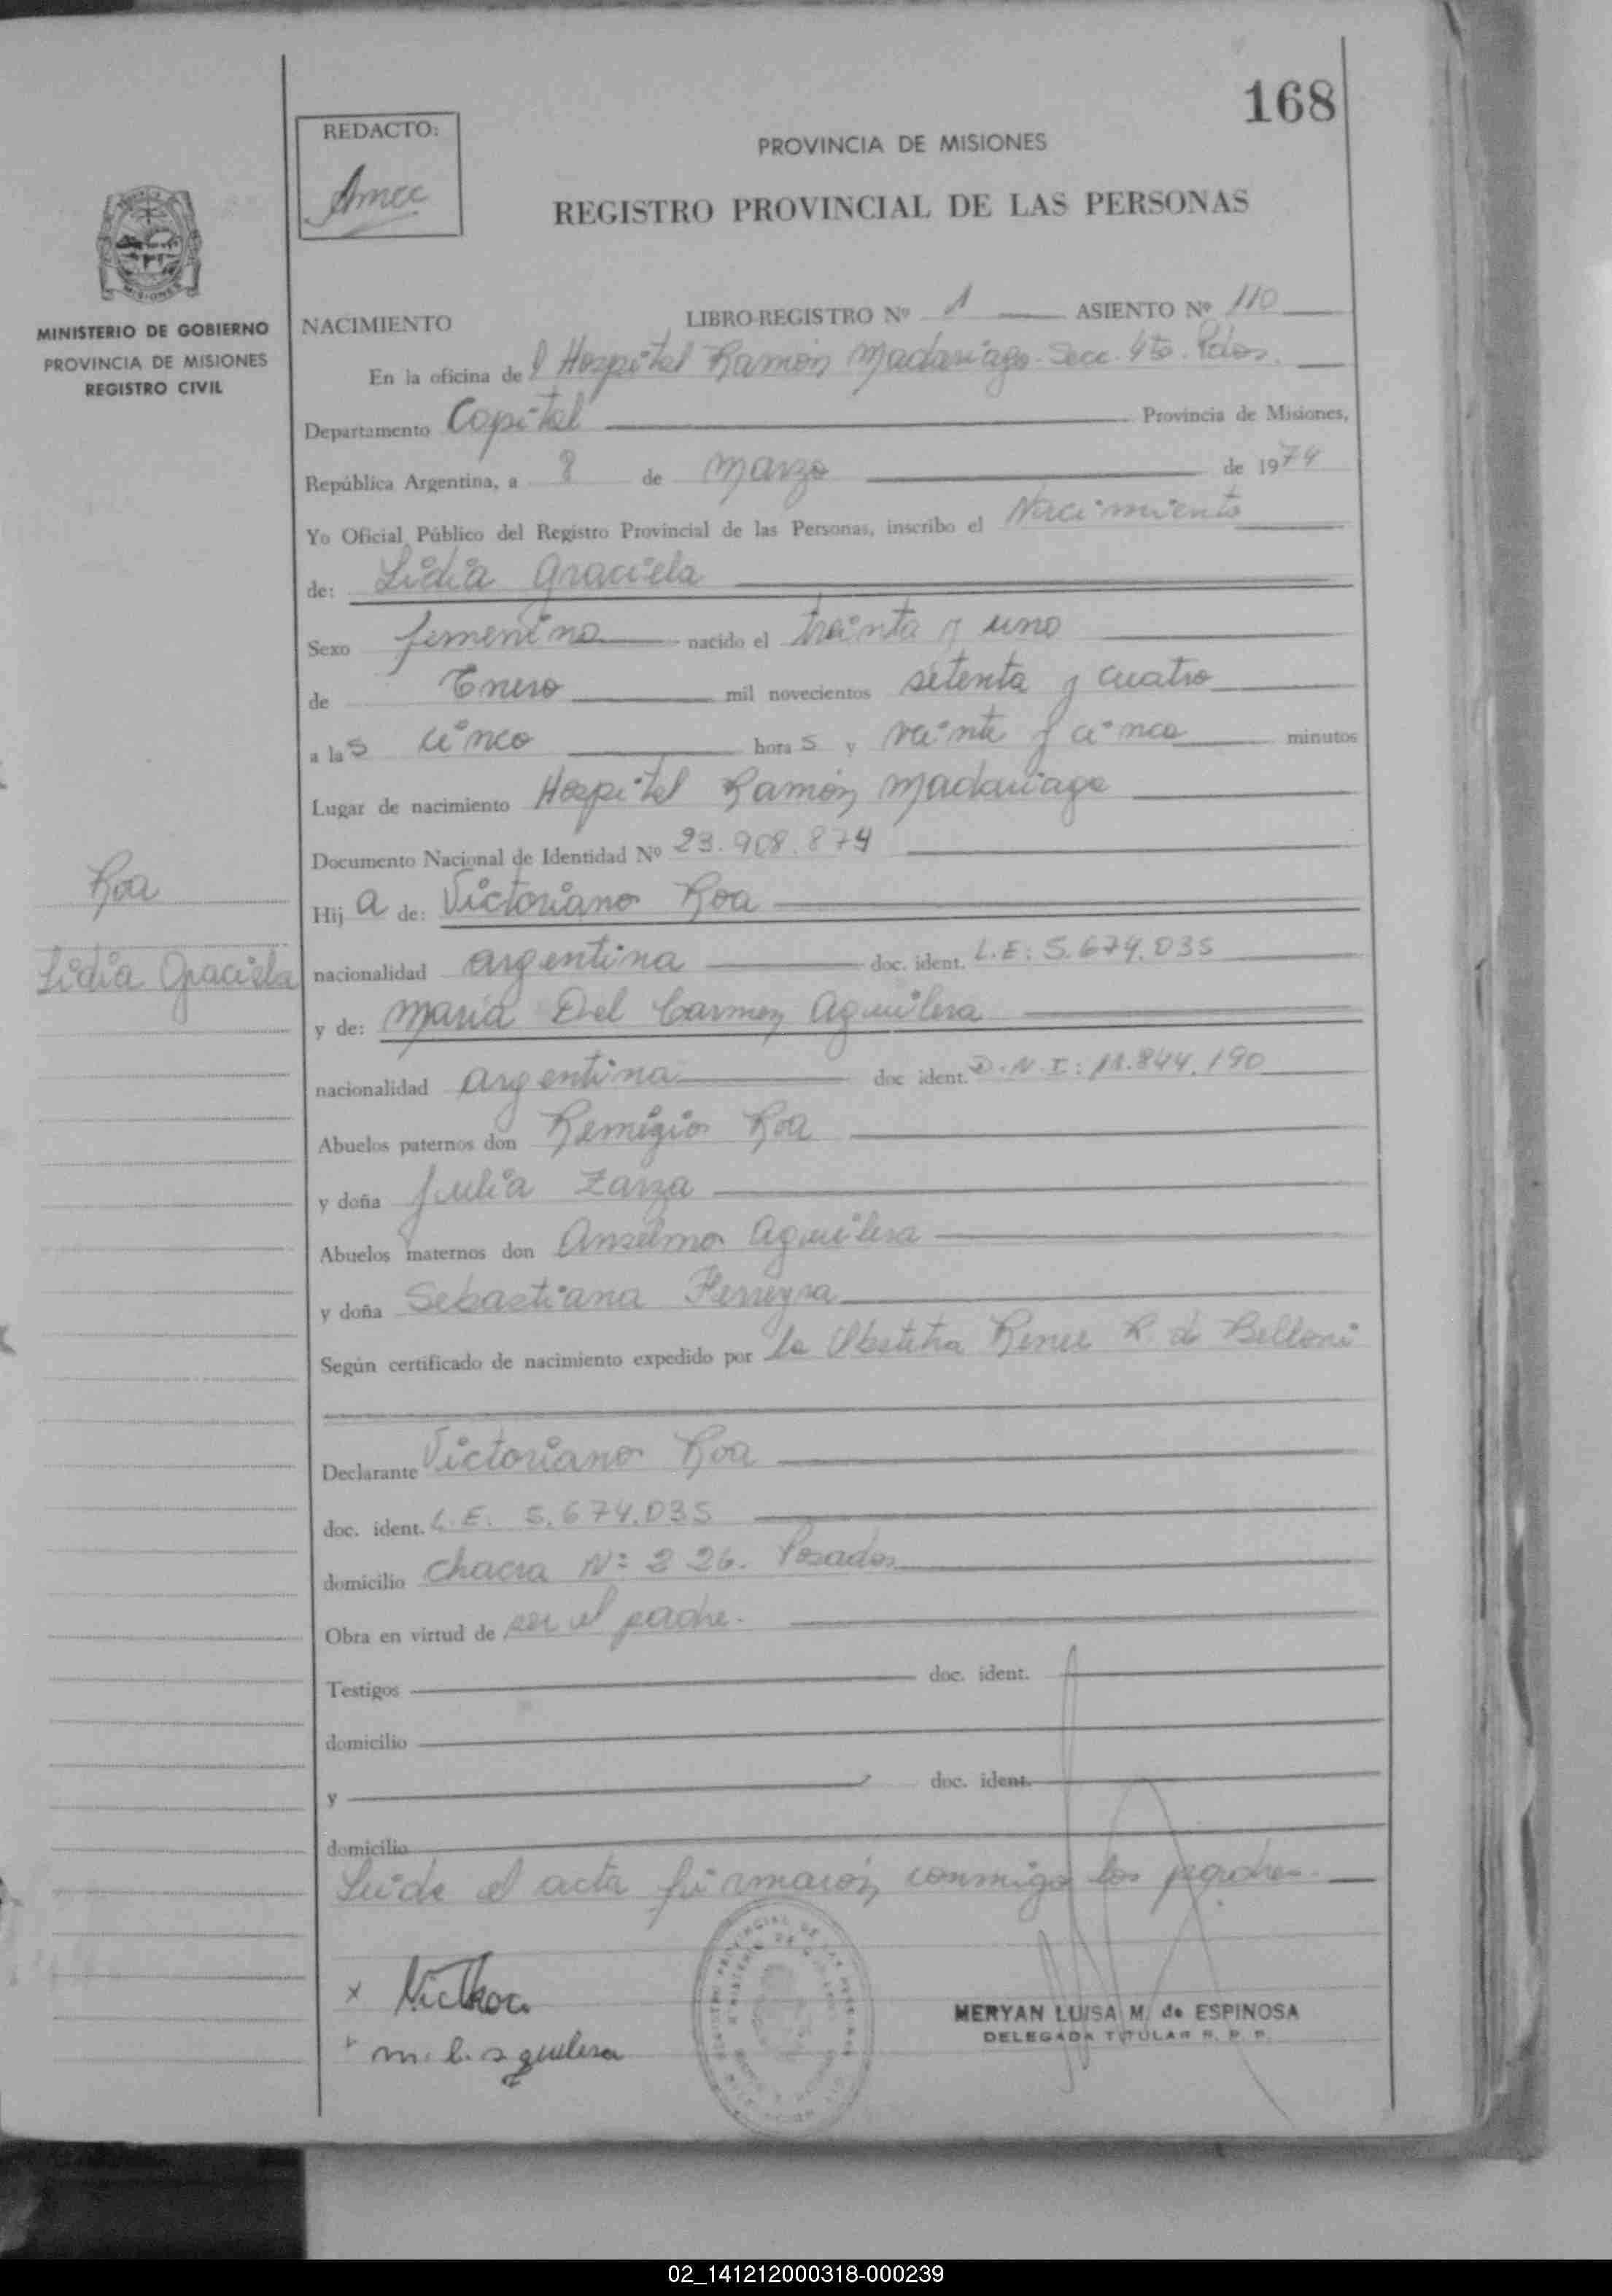 168
REDACTO:
PROVINCIA DE MISIONES
REGISTRO PROVINCIAL DE LAS PERSONAS
MISIONES
MINISTERIO DE GOBIERNO
PROVINCIA DE MISIONES
REGISTRO CIVIL
NACIMIENTO LIBRO-REGISTRO Nº 1 ASIENTO Nº 110
En la oficina del Hospital Ramón Madariaga - Secc. 4ta. Pdas.
Departamento Capital Provincia de Misiones,
República Argentina, a 8 de Marzo de 1974
Yo Oficial Público del Registro Provincial de las Personas, inscribo el Nacimiento
de: Lidia Graciela
Sexo femenino nacido el treinta y uno
de Enero mil novecientos setenta y cuatro
a las cinco horas y veinte y cinco minutos
Lugar de nacimiento Hospital Ramón Madariaga
Documento Nacional de Identidad Nº 23.908.874
Roa
Hija de: Victoriano Roa
Lidia Graciela
nacionalidad argentina doc. ident. L.E: 5.674.035
y de: Maria Del Carmen Aguilera
nacionalidad argentina doc ident. D.N.I: 11.844.190
Abuelos paternos don Remigio Roa
y doña Julia Zarza
Abuelos maternos don Anselmo Aguilera
y doña Sebastiana Ferreyra
Según certificado de nacimiento expedido por la Obstetra Renee R. de Belloni
Declarante Victoriano Roa
doc. ident. L.E. 5.674.035
domicilio Chacra Nº 226. Posadas
Obra en virtud de ser el padre.
Testigos doc. ident.
domicilio
y doc. ident.
domicilio
Leida el acta firmaron conmigo los padres.
x Vic Roa
x m. c. aguilera
MERYAN LUISA M. de ESPINOSA
DELEGADA TITULAR R. P. P.
02_141212000318-000239